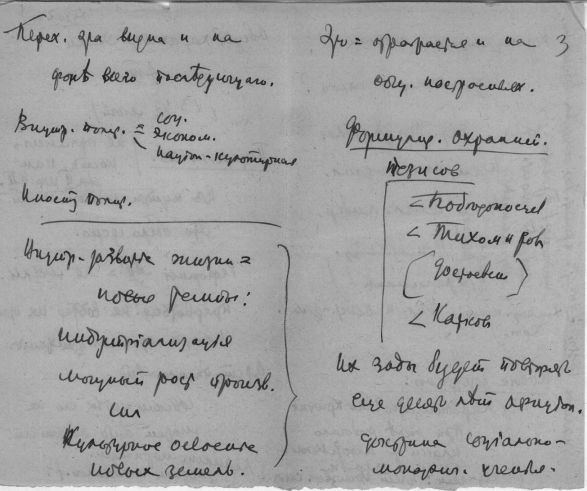 Перех. эра видна и на
фоне всего последующаго.
Внутр. полит. = соц.
эконом.
научно-культурная
Иностр. полит.
Внутр. развитие жизни =
новые религ.:
индустриализация
мощный рост произв.
сил
Культурное освоение
новых земель.
Это = отражается и на 3
общ. настроениях.
Формулир. охранит.
тезисов
< Победоносцев
< Тихомиров
(Достоевск)
< Катков
Их зады будет повторять
еще десять лет
доктрина социально-
монархич.